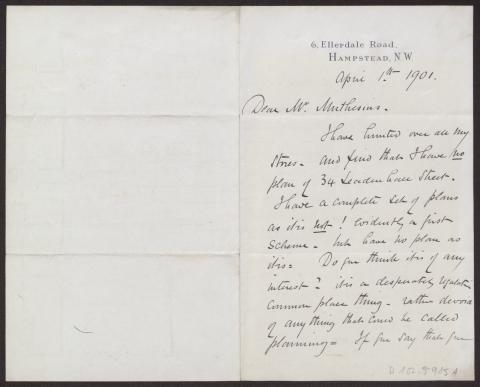 6, Ellerdale Road,
HAMPSTEAD, N.W.
April 1st 1901.
Dear Mr. Muthesius.
I have hunted over all my
stores - and find that I have no
plan of 34 Leadenhall Street.
I have a complete set of plans
as it is not! Evidently a first
scheme - but have no plan as
it is = Do you think it is of any
interest? it is a desperately
common place thing - rather devoid
of anything that could be called
planning = If you say that you
D 102-5915 A